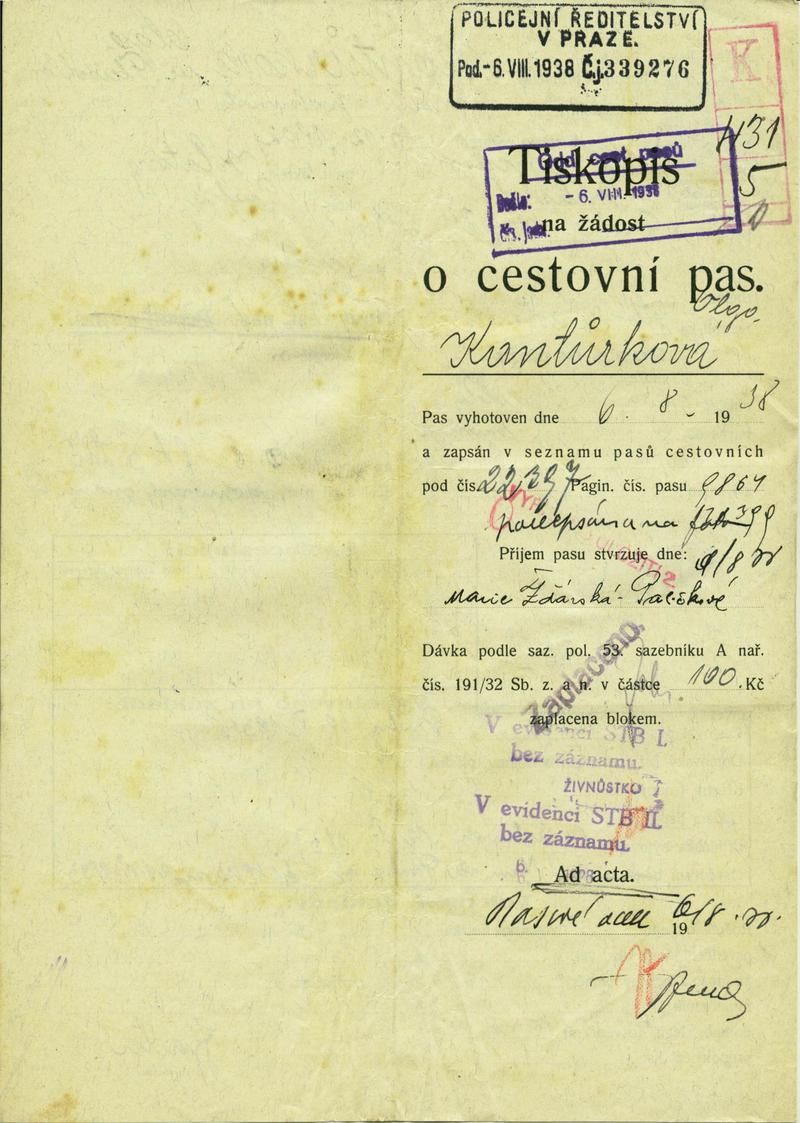 POLICEJNÍ ŘEDITELSTVÍ
V PRAZE.
Pod. - 6. VIII. 1938 Č.j. 339276
K
H31
5
Odd. cest. pasů
Tiskopis
Došlo: - 6. VIII. 1938
na žádost
o cestovní pas.
Olga
Kantůrková
Pas vyhotoven dne 6. 8 - 1938
a zapsán v seznamu pasů cestovních
pod čís. 22.397 Pagin. čís. pasu 9864
na
Příjem pasu stvrzuje dne: 9/8
Marie Žďárská
Dávka podle saz. pol. 53. sazebníku A nař.
čís. 191/32 Sb. z. a n. v částce 100.Kč
Zaplaceno.
zaplacena blokem.
V evidenci STB I.
bez záznamu.
ŽIVNŮSTKO
V evidenci STB II.
bez záznamu.
Ad acta.
6/8
19